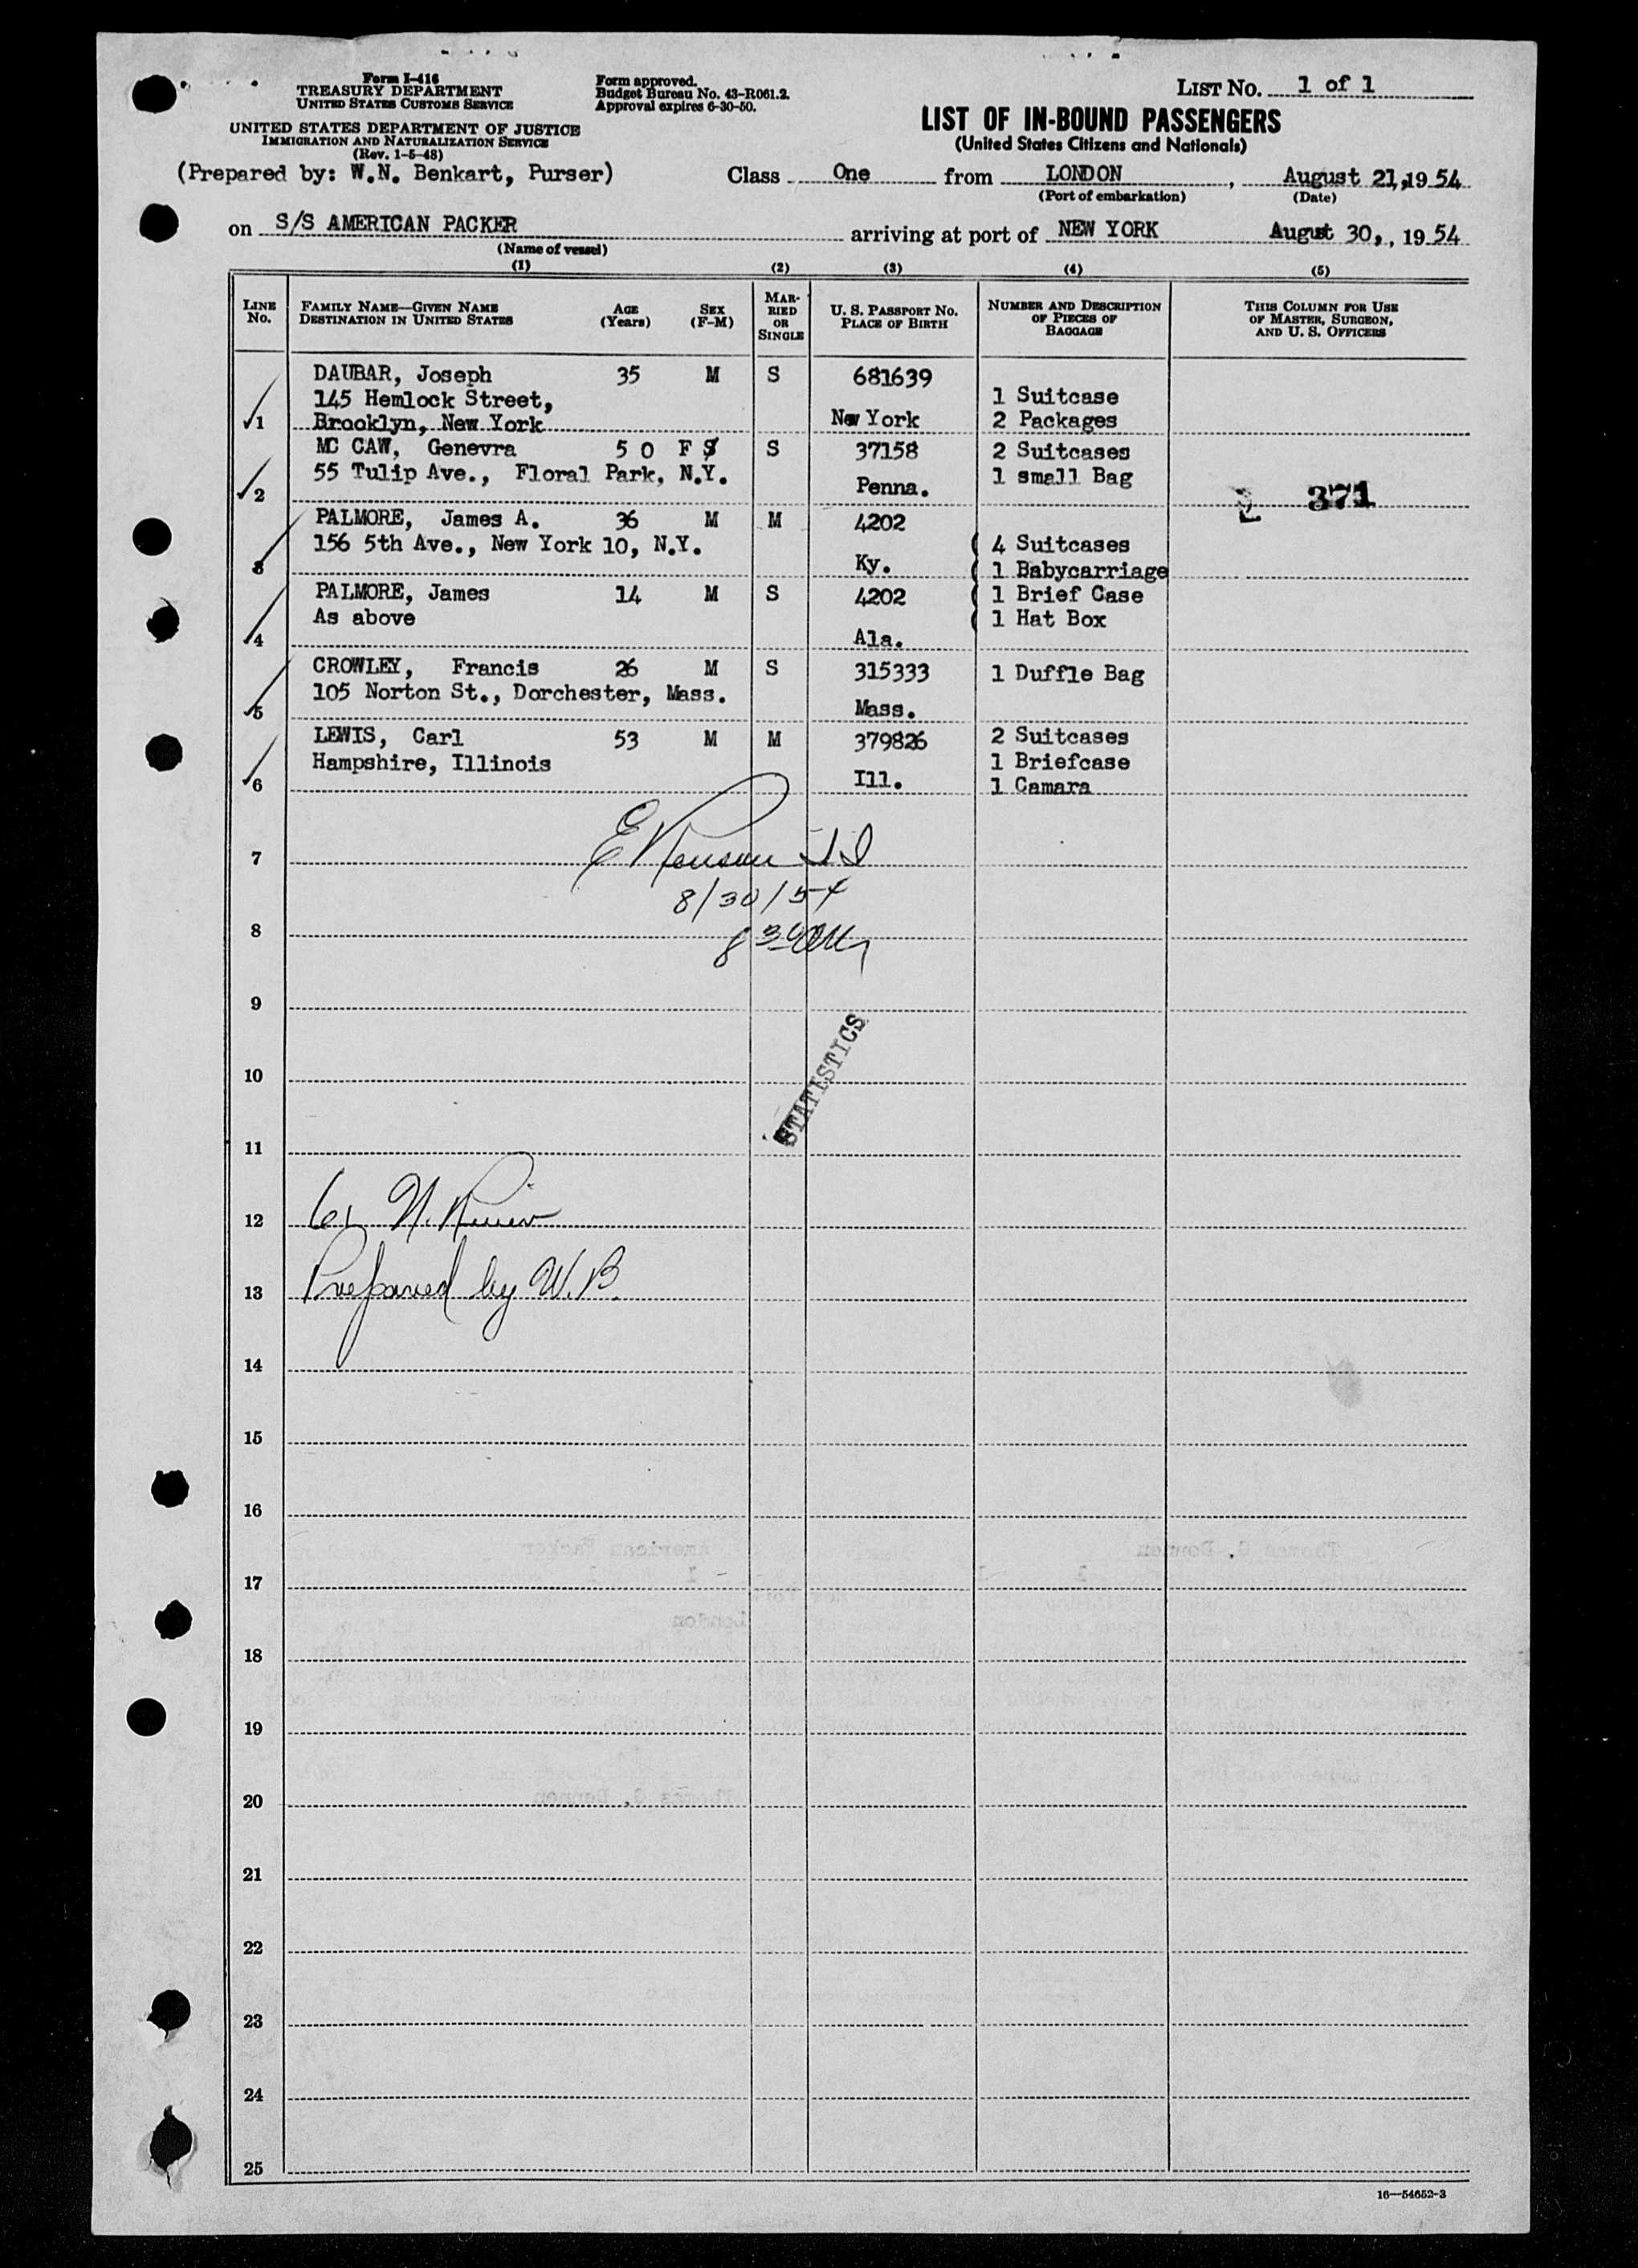 Form I-416
TREASURY DEPARTMENT
UNITED STATES CUSTOMS SERVICE
UNITED STATES DEPARTMENT OF JUSTICE
IMMIGRATION AND NATURALIZATION SERVICE
(Rev. 1-5-48)
(Prepared by: W.N. Benkart, Purser)
Form approved.
Budget Bureau No. 43-R061.2.
Approval expires 6-30-50.
LIST No. 1 of 1
LIST OF IN-BOUND PASSENGERS
(United States Citizens and Nationals)
Class One from LONDON, August 21, 1954
(Port of embarkation) (Date)
on S/S AMERICAN PACKER arriving at port of NEW YORK August 30, , 1954
(Name of vessel)
(1) (2) (3) (4) (5)
LINE No. FAMILY NAME—GIVEN NAME DESTINATION IN UNITED STATES AGE (Years) SEX (F-M) MARRIED OR SINGLE U. S. PASSPORT No. PLACE OF BIRTH NUMBER AND DESCRIPTION OF PIECES OF BAGGAGE THIS COLUMN FOR USE OF MASTER, SURGEON, AND U. S. OFFICERS
DAUBAR, Joseph 35 M S 681639
145 Hemlock Street, 1 Suitcase
1 Brooklyn, New York New York 2 Packages
MC CAW, Genevra 5 0 F S S 37158 2 Suitcases
55 Tulip Ave., Floral Park, N.Y. Penna. 1 small Bag
2 371
PALMORE, James A. 36 M M 4202
156 5th Ave., New York 10, N.Y. ( 4 Suitcases
3 Ky. ( 1 Babycarriage
PALMORE, James 14 M S 4202 ( 1 Brief Case
As above ( 1 Hat Box
4 Ala.
CROWLEY, Francis 26 M S 315333 1 Duffle Bag
105 Norton St., Dorchester, Mass.
5 Mass.
LEWIS, Carl 53 M M 379826 2 Suitcases
Hampshire, Illinois 1 Briefcase
6 Ill. 1 Camara
7
8/30/54
8
9
10
STATISTICS
11
12
13 Prepared by W.B.
14
15
16
17
18
19
20
21
22
23
24
25
16—54652-3